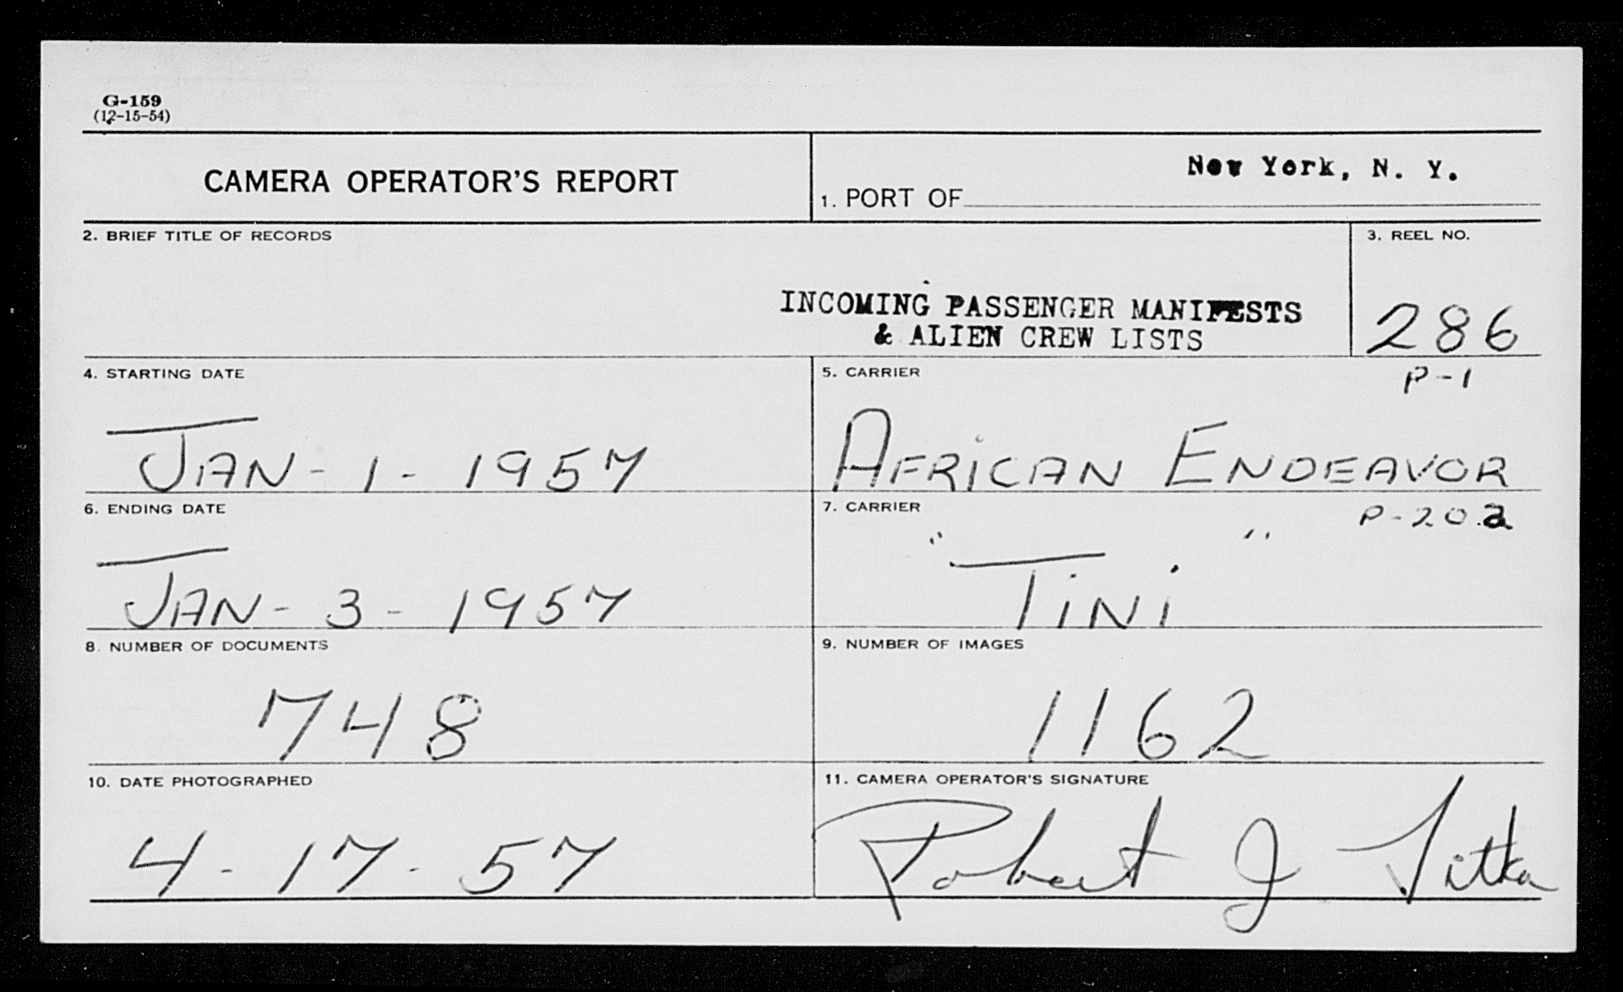 G-159
(12-15-54)
CAMERA OPERATOR'S REPORT
1. PORT OF New York, N. Y.
2. BRIEF TITLE OF RECORDS
INCOMING PASSENGER MANIFESTS
& ALIEN CREW LISTS
3. REEL NO.
286
4. STARTING DATE
JAN-1-1957
5. CARRIER
P-1
AFRICAN ENDEAVOR
6. ENDING DATE
JAN-3-1957
7. CARRIER
P-20.2
"TINI"
8. NUMBER OF DOCUMENTS
748
9. NUMBER OF IMAGES
1162
10. DATE PHOTOGRAPHED
4-17-57
11. CAMERA OPERATOR'S SIGNATURE
Robert J